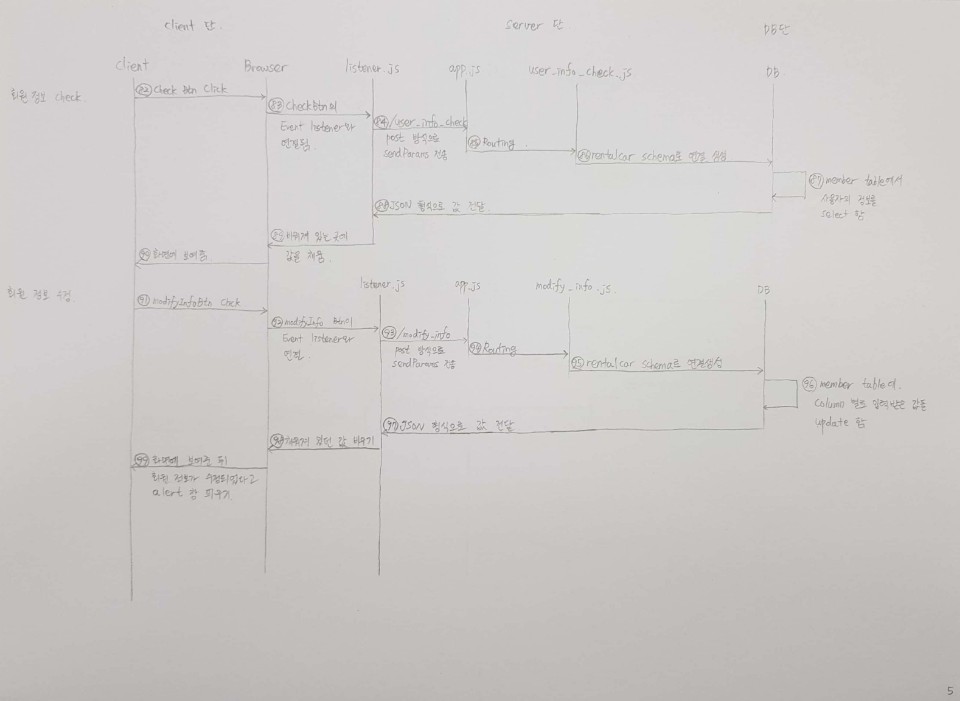 client 단
Server 단
DB단
client
Browser
listener.js
app.js
user_info_check.js
DB
회원 정보 check
82 Check btn Click
83 Checkbtn의
Event listener와
연결됨.
84 /user_info_check
post 방식으로
sendParams 전송
85 Routing
86 rentalcar schema로 연결 생성
87 member table에서
사용자의 정보를
select 함
88 JSON 형식으로 값 전달
89 비워져 있는 곳에
값을 채움.
90 화면에 보여줌.
회원 정보 수정
listener.js
app.js
modify_info.js
DB
91 modifyInfoBtn Click
92 modifyInfo Btn이
Event listener와
연결.
93 /modify_info
post 방식으로
sendParams 전송
94 Routing
95 rentalcar schema로 연결생성
96 member table에
Column 별로 입력받은 값을
update 함
97 JSON 형식으로 값 전달
98 채워져 있던 값 비우기
99 화면에 보여준 뒤
회원 정보가 수정되었다고
alert 창 띄우기
5